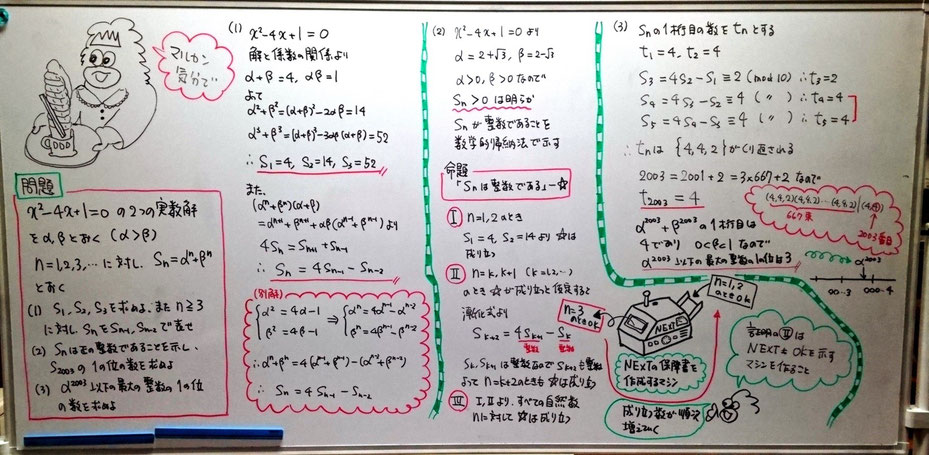 マルカン
気分で
問題
x²-4x+1=0 の2つの実数解
をα,βとおく (α>β)
n=1,2,3,… に対し、Sn=αⁿ+βⁿ
とおく
(1) S₁, S₂, S₃を求めよ。また n≧3
に対し、SnをSn-1, Sn-2で表せ
(2) Snは正の整数であることを示し、
S2003の1の位の数を求めよ
(3) α²⁰⁰³以下の最大の整数の1の位
の数を求めよ
(1) x²-4x+1=0
解と係数の関係より
α+β=4, αβ=1
よって
α²+β²=(α+β)²-2αβ=14
α³+β³=(α+β)³-3αβ(α+β)=52
∴ S₁=4, S₂=14, S₃=52
また、
(αⁿ+βⁿ)(α+β)
=αⁿ⁺¹+βⁿ⁺¹+αβ(αⁿ⁻¹+βⁿ⁻¹) より
4Sn=Sn+1+Sn-1
∴ Sn=4Sn-1-Sn-2
(別解)
{α²=4α-1 ⇒ {αⁿ=4αⁿ⁻¹-αⁿ⁻²
{β²=4β-1 {βⁿ=4βⁿ⁻¹-βⁿ⁻²
∴αⁿ+βⁿ=4(αⁿ⁻¹+βⁿ⁻¹)-(αⁿ⁻²+βⁿ⁻²)
∴ Sn=4Sn-1-Sn-2
(2) x²-4x+1=0 より
α=2+√3, β=2-√3
α>0, β>0なので
Sn>0 は明らか
Snが整数であることを
数学的帰納法で示す
命題
「Snは整数である」―☆
I n=1,2のとき
S₁=4, S₂=14より ☆は
成り立つ
II n=k, k+1 (k=1,2,…)
のとき☆が成り立つと仮定すると
漸化式より
Sk+2=4Sk+1-Sk
整数 整数
Sk, Sk+1は整数なのでSk+2も整数
よってn=k+2のときも☆は成り立つ
III I,IIより、すべての自然数
nに対して☆は成り立つ
(3) Snの1桁目の数をtnとする
t₁=4, t₂=4
S₃=4S₂-S₁≡2 (mod 10) ∴t₃=2
S₄=4S₃-S₂≡4 ( 〃 ) ∴t₄=4
S₅=4S₄-S₃≡4 ( 〃 ) ∴t₅=4
∴tnは {4,4,2}がくり返される
2003=2001+2=3×667+2 なので
t2003=4
(4,4,2)(4,4,2)…(4,4,2)(4,4)
667束
2003番目
α²⁰⁰³+β²⁰⁰³の1桁目は
4であり 0<β<1なので
α²⁰⁰³以下の最大の整数の1の位は3
α²⁰⁰³
○○…3
○○○…4
n=1,2
のときOK
n=3
のときOK
NEXT
NEXTの保障書を
作成するマシン
証明のIIは
NEXTもOKを示す
マシンを作ること
成り立つ数が順次
増えていく